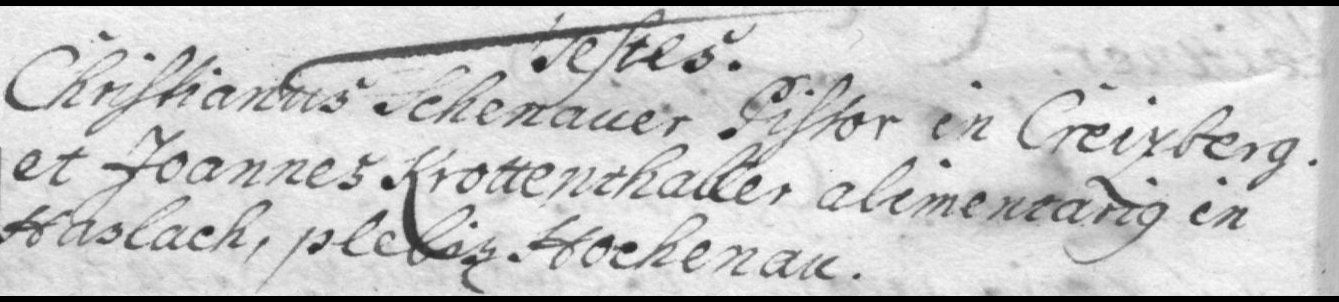 Testes.
Christianus Schenauer Pistor in Creizberg.
et Joannes Krottenthaller alimentarig in
Haslach, plebiz Hochenau.